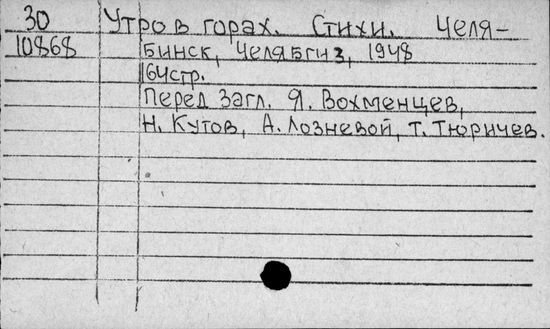 30 Утро в горах. Стихи. Челя-
10868 бинск, Челябгиз, 1948
164стр.
Перед загл. Я. Вохменцев,
Н. Кутов, А. Лозневой, Т. Тюричев.